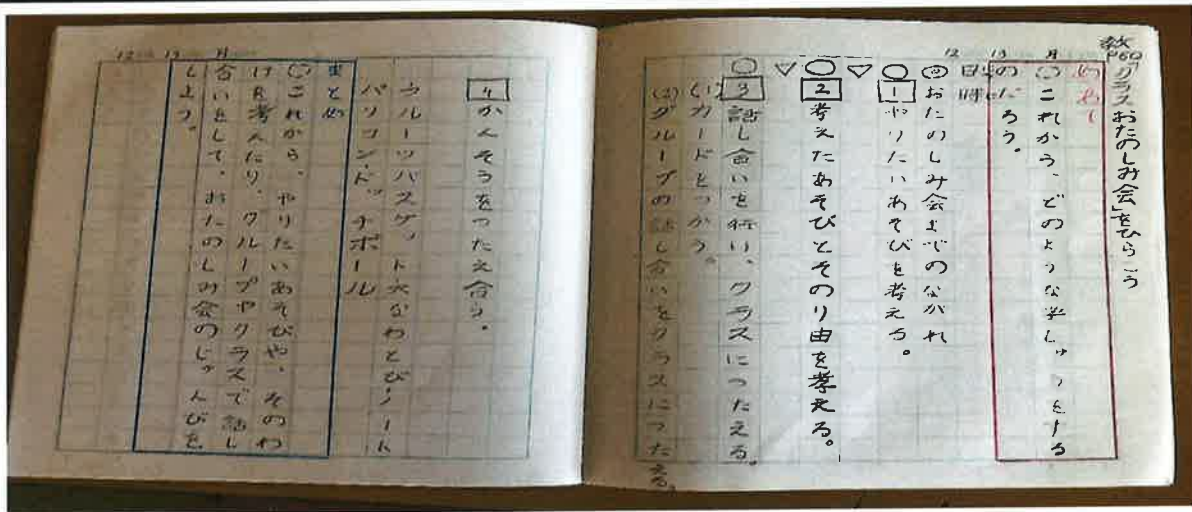 教P60「クラスおたのしみ会」をひらこう
めあて
○これから、どのような学しゅうをする
のだろう。
12 13 月
◎おたのしみ会までのながれ
○1やりたいあそびを考える。
▽
○2考えたあそびとそのり由を考える。
▽
○3話し合いを行い、クラスにつたえる。
(1)カードとつかう。
(2)グループの話し合いをクラスにつたえる。
4かんそうをつたえ合う。
フルーツバスケット大なわとび、ノート
パソコン、ドッチボール
まとめ
○これから、やりたいあそびや、そのわ
けを考えたり、グループやクラスで話し
合いをして、おたのしみ会のじゅんびを
しよう。
12 13 月